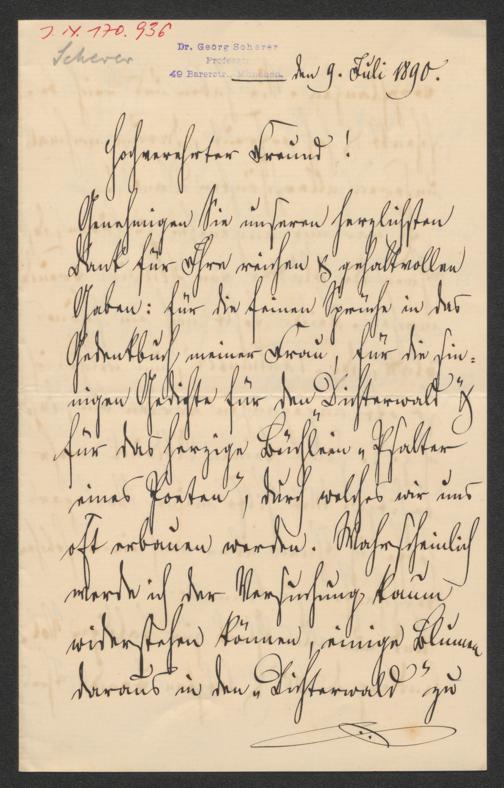 J. N. 170.936
Scherer
Dr. Georg Scherer
Professor
49 Barerstr. München.
den 9. Juli 1890.
Hochverehrter Freund!
Genehmigen Sie unseren herzlichsten
Dank für Ihre reichen & gehaltvollen
Gaben: für die feinen Sprüche in das
Gedenkbuch meiner Frau, für die sin-
nigen Gedichte für den „Dichterwald" &
für das herzige Büchlein „Psalter
eines Poeten", durch welches wir uns
oft erbauen werden. Wahrscheinlich
werde ich der Versuchung kaum
widerstehen können, einige Blumen
daraus in den „Dichterwald" zu